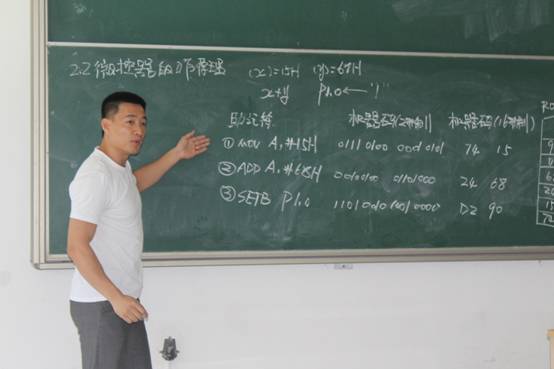 2.2 微控器的工作原理 (x)=15H (y)=68H
x+y P1.0←"1"
助记符 机器码(2进制) 机器码(16进制)
① MOV A, #15H 01110100 00010101 74 15
② ADD A, #68H 00100100 01101000 24 68
③ SETB P1.0 11010010 10010000 D2 90